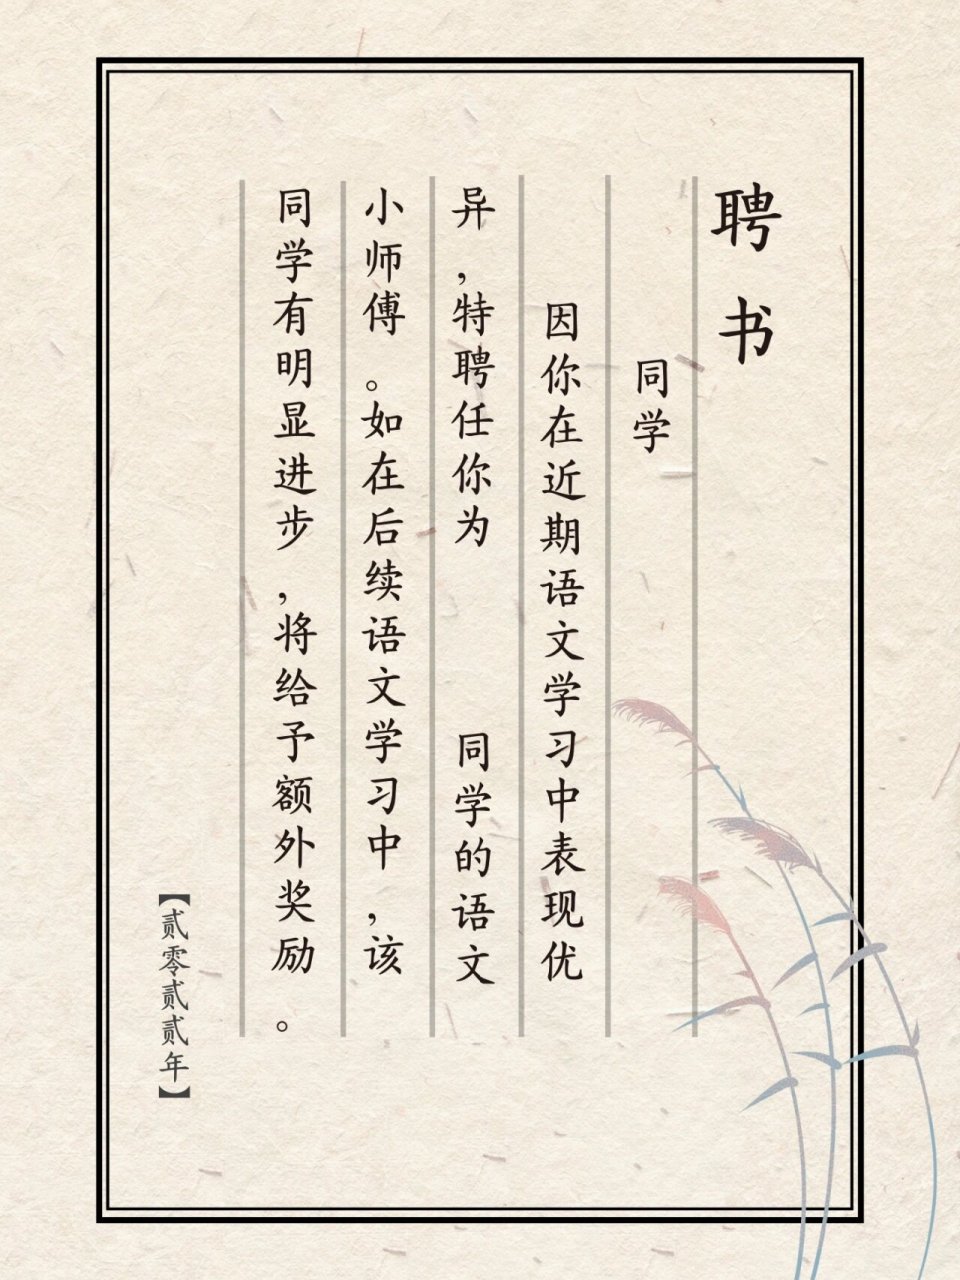 聘书
同学
因你在近期语文学习中表现优
异，特聘任你为 同学的语文
小师傅。如在后续语文学习中，该
同学有明显进步，将给予额外奖励。
【贰零贰贰年】